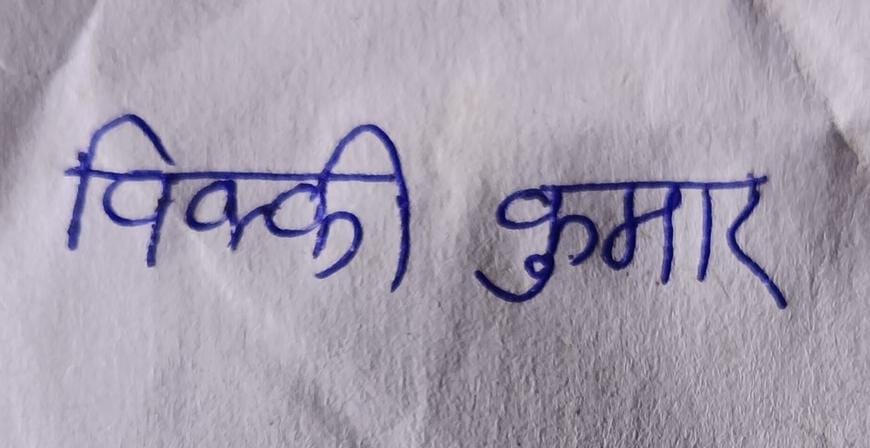 विक्की कुमार